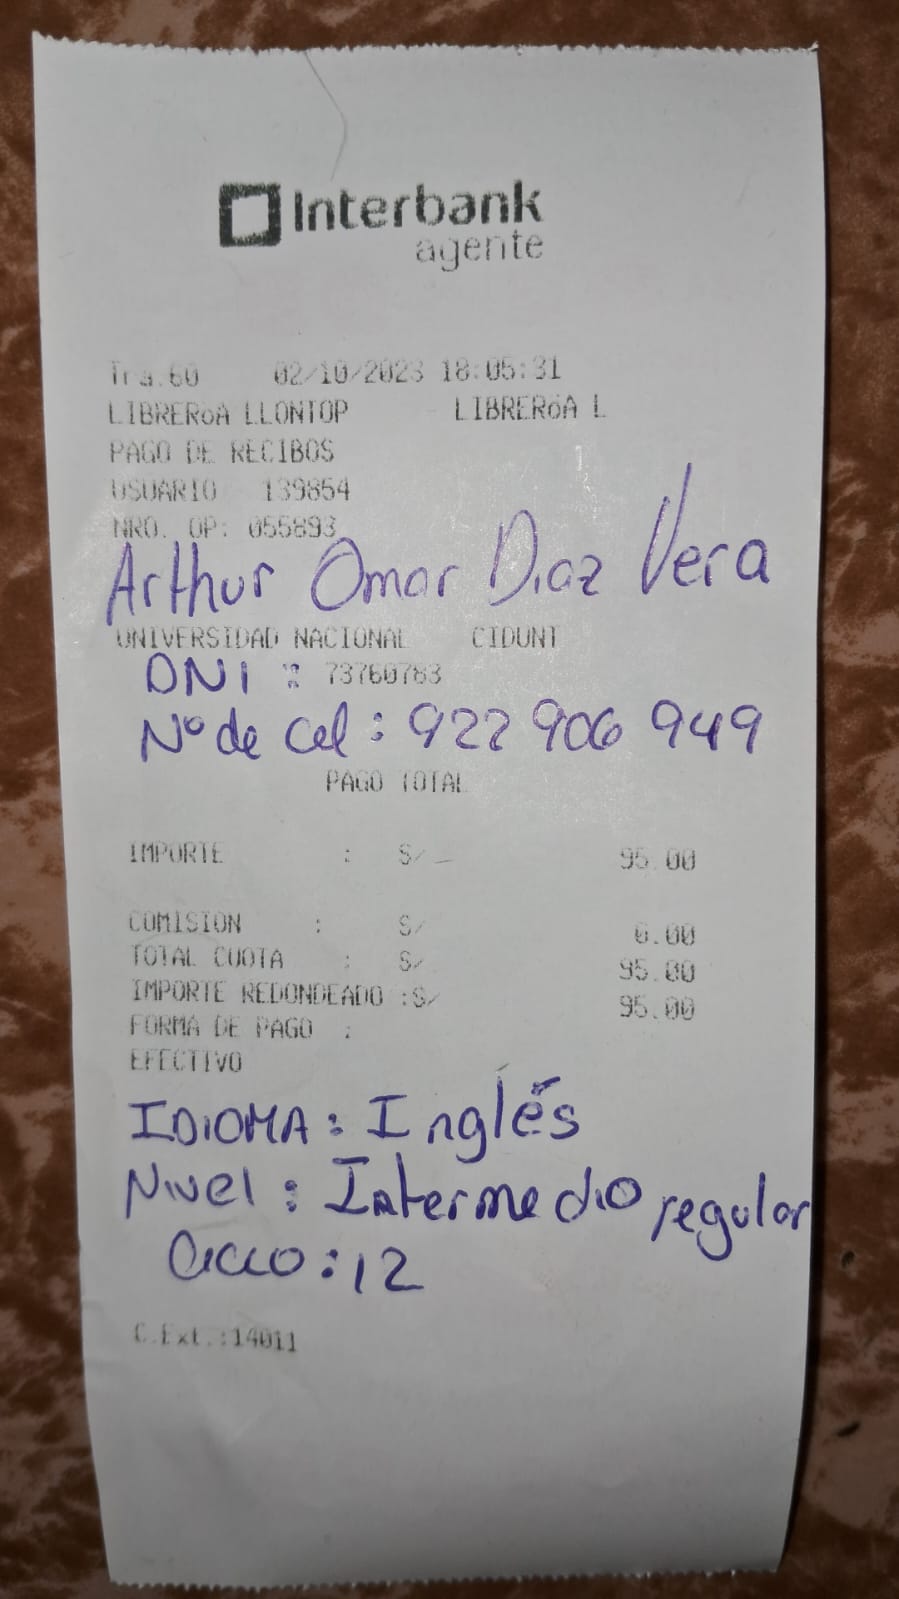 Interbank
agente
Tra.60 02/10/2023 18:05:31
LIBRERóA LLONTOP LIBRERóA L
PAGO DE RECIBOS
USUARIO 139854
NRO. OP: 055893
Arthur Omar Diaz Vera
UNIVERSIDAD NACIONAL CIDUNT
DNI : 73760783
N° de cel : 922 906 949
PAGO TOTAL
IMPORTE : S/ 95.00
COMISION : S/ 0.00
TOTAL CUOTA : S/ 95.00
IMPORTE REDONDEADO :S/ 95.00
FORMA DE PAGO :
EFECTIVO
IDIOMA : Inglés
Nivel : Intermedio regular
Ciclo : 12
C.Ext.:14011